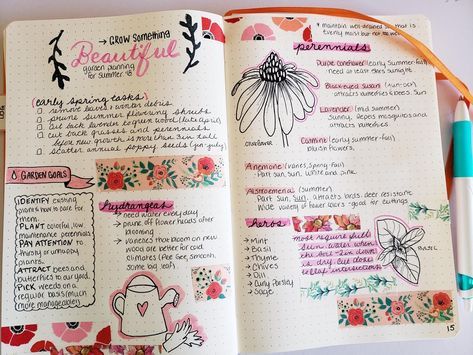 → GROW Something
Beautiful
garden planning
for summer '18
(early spring tasks)
□ remove leaves & winter debris
□ prune summer flowering shrubs
□ cut back lavender to green wood (late april)
□ cut back grasses and perennials
before new growth is more than 3in tall
□ scatter annual poppy seeds
GARDEN GOALS
IDENTIFY existing
plants & how to care for
them.
PLANT colorful, low
maintenance perennials.
PAY ATTENTION to
thirsty or unhappy
plants.
ATTRACT bees and
butterflies to our yard.
PICK weeds on a
regular basis (much
more manageable)
hydrangeas
→ need water everyday
→ prune off flower heads after
blooming
→ varieties that bloom on new
wood are better for cold
climates (Pee Gee, smooth,
some big leaf)
* maintain well-drained soil that is
evenly moist but not too wet.
perennials
Purple coneflower (early summer-fall)
need at least 6hrs sunlight
Blackeyed susans (sun-oct)
attracts butterflies & bees. Sun
Lavender (mid summer)
Sunny. Repels mosquitos and
attracts butterflies
Catmint (early summer-fall)
blueish flowers.
coneflower
Anemone (varies, Spring-fall)
Part sun, sun, white and pink
Alstroemeria (summer)
Part sun, sun, attracts bees, deer resistant
wide variety of flower colors - good for cuttings
herbs
→ Mint
→ Basil
→ Thyme
→ Chives
→ Dill
→ Curly Parsley
→ Sage
most require full
sun. Water when
the soil 2in down
is dry. Cut close
to leaf intersections.
BASIL
15